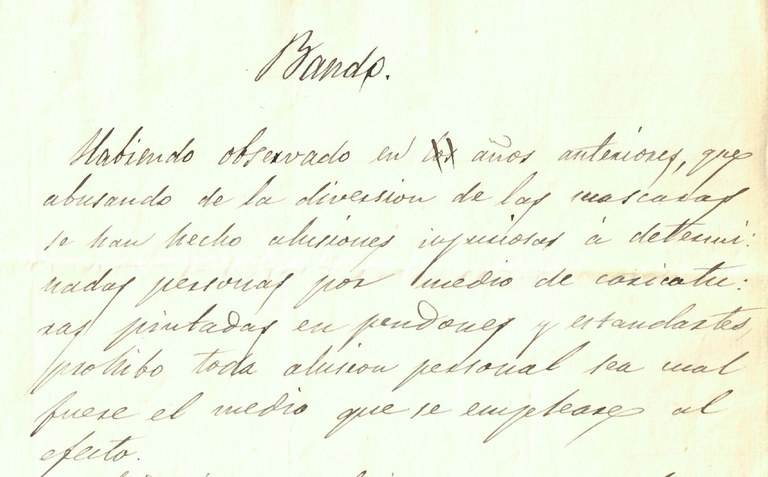 Bando.
Habiendo observado en los años anteriores, que
abusando de la diversion de las mascaras
se han hecho alusiones injuriosas á determi:
nadas personas por medio de caricatu:
ras pintadas en pendones y estandartes,
prohibo toda alusion personal sea cual
fuese el medio que se emplease al
efecto.